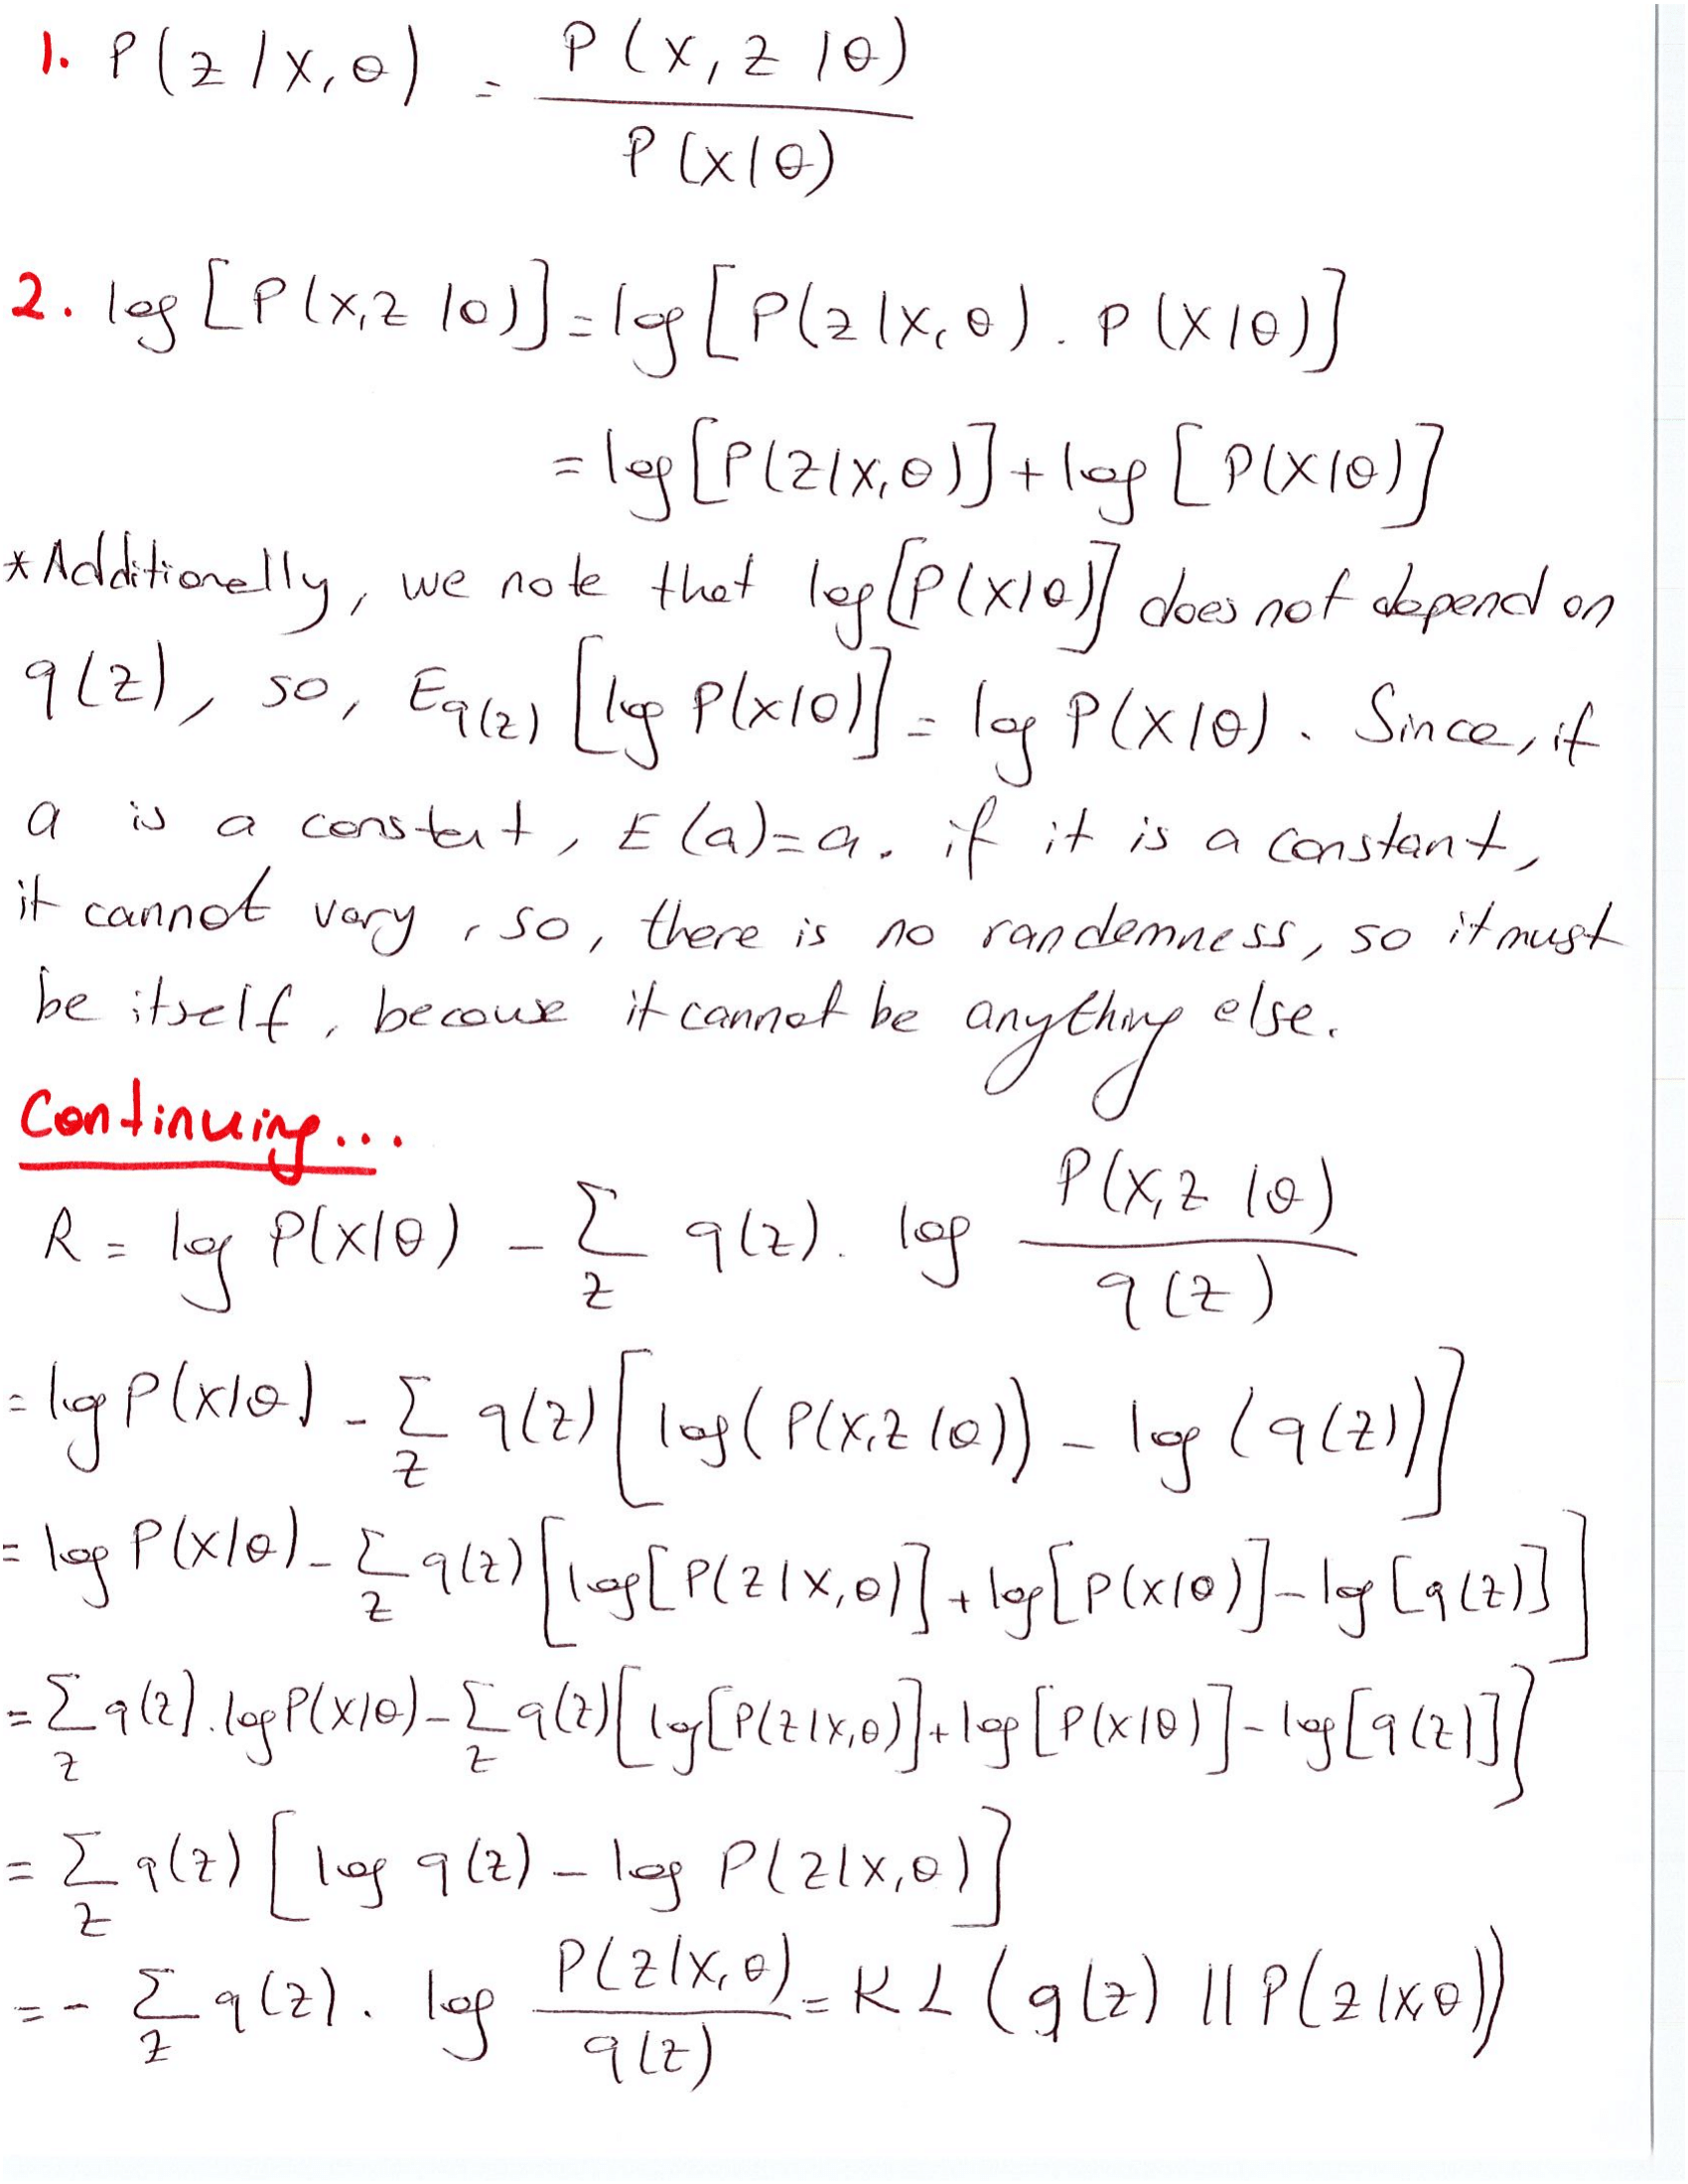 1. P(z|X,θ) = P(X,z|θ) / P(X|θ)
2. log[P(X,z|θ)] = log[P(z|X,θ).P(X|θ)]
= log[P(z|X,θ)] + log[P(X|θ)]
*Additionally, we note that log[P(X|θ)] does not depend on
q(z), so, E_q(z) [log P(X|θ)] = log P(X|θ). Since, if
a is a constant, E(a)=a. if it is a constant,
it cannot vary, so, there is no randemness, so it must
be itself, because it cannot be anything else.
Continuing...
R = log P(X|θ) - Σ_z q(z). log P(X,z|θ) / q(z)
= log P(X|θ) - Σ_z q(z)[log(P(X,z|θ)) - log(q(z))]
= log P(X|θ) - Σ_z q(z)[log[P(z|X,θ)] + log[P(X|θ)] - log[q(z)]]
= Σ_z q(z).log P(X|θ) - Σ_z q(z)[log[P(z|X,θ)] + log[P(X|θ)] - log[q(z)]]
= Σ_z q(z)[log q(z) - log P(z|X,θ)]
= - Σ_z q(z). log P(z|X,θ) / q(z) = KL(q(z) || P(z|X,θ))